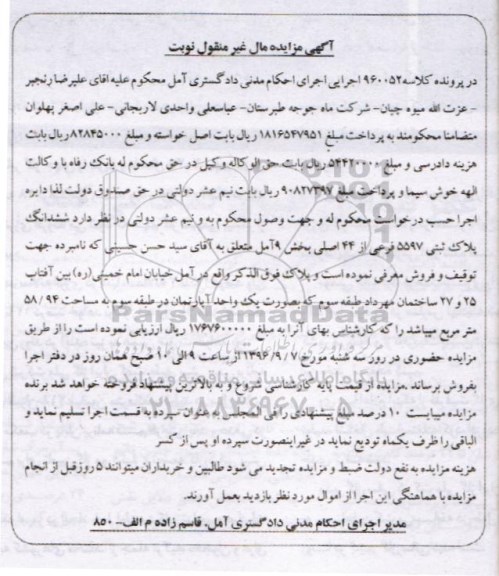 آگهی مزایده مال غیر منقول نوبت
در پرونده کلاسه ۹۶۰۰۵۲ اجرایی اجرای احکام مدنی دادگستری آمل محکوم علیه اقای علیرضا رنجبر
- عزت الله میوه چیان- شرکت ماه جوجه طبرستان- عباسعلی واحدی لاریجانی- علی اصغر پهلوان
متضامنا محکومند به پرداخت مبلغ ۱۸۱۶۵۴۷۹۵۱ ریال بابت اصل خواسته و مبلغ ۸۲۸۴۵۰۰۰ ریال بابت
هزینه دادرسی و مبلغ ۵۴۴۲۰۰۰۰ ریال بابت حق الوکاله وکیل در حق محکوم له بانک رفاه با وکالت
الهه خوش سیما و پرداخت مبلغ ۹۰۸۲۷۳۹۷ ریال بابت نیم عشر دولتی در حق صندوق دولت لذا دایره
اجرا حسب درخواست محکوم له و جهت وصول محکوم به و نیم عشر دولتی در نظر دارد ششدانگ
پلاک ثبتی ۵۵۹۷ فرعی از ۴۴ اصلی بخش ۹ آمل متعلق به آقای سید حسن حسینی که نامبرده جهت
توقیف و فروش معرفی نموده است و پلاک فوق الذکر واقع در آمل خیابان امام خمینی(ره) بین آفتاب
۲۵ و ۲۷ ساختمان مهرداد طبقه سوم که بصورت یک واحد آپارتمان در طبقه سوم به مساحت ۵۸/۹۴
متر مربع میباشد را که کارشناس بهای آنرا به مبلغ ۱۷۶۷۶۰۰۰۰۰ ریال ارزیابی نموده است را از طریق
مزایده حضوری در روز سه شنبه مورخ ۱۳۹۶/۹/۷ از ساعت ۹ الی ۱۰ صبح همان روز در دفتر اجرا
بفروش برساند .مزایده از قیمت پایه کارشناسی شروع و به بالاترین پیشنهاد فروخته خواهد شد برنده
مزایده میبایست ۱۰ درصد مبلغ پیشنهادی را فی المجلس به عنوان سپرده به قسمت اجرا تسلیم نماید و
الباقی را ظرف یکماه تودیع نماید در غیر اینصورت سپرده او پس از کسر
هزینه مزایده به نفع دولت ضبط و مزایده تجدید می شود طالبین و خریداران میتوانند ۵ روز قبل از انجام
مزایده با هماهنگی این اجرا از اموال مورد نظر بازدید بعمل آورند.
مدیر اجرای احکام مدنی دادگستری آمل، قاسم زاده م الف- ۸۵۰
ParsNamadData